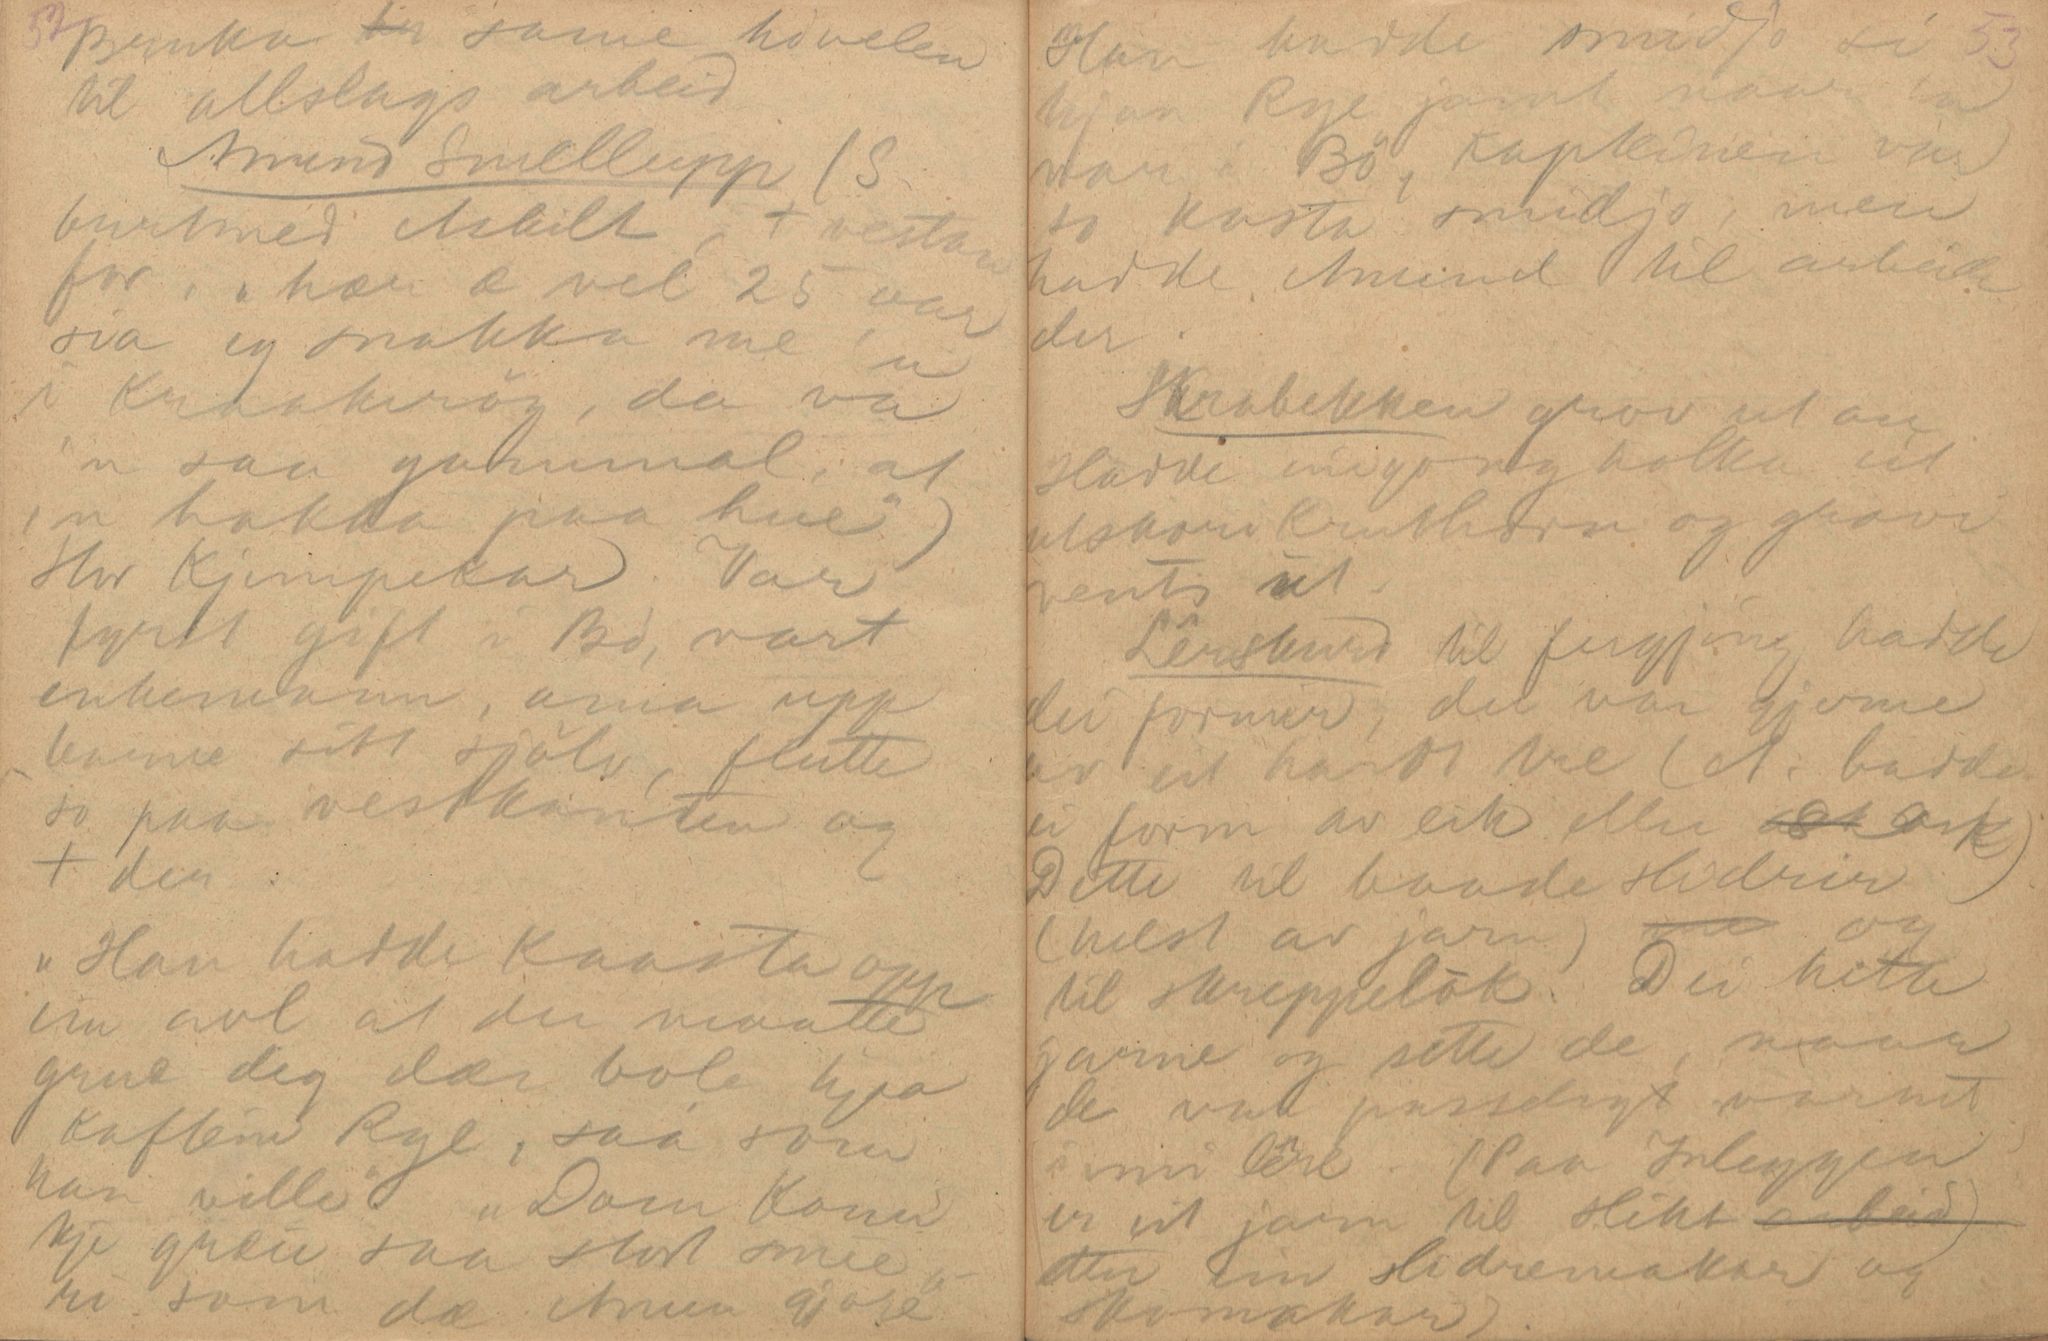 52
Bruka ~~tri~~ same hövelen
til allslags arbeid
Amund Smellupp (S
burtmed Askilt, + vestan
for, "hær æ vel 25 aar
sia eg snakka me 'n
i Kraakerög, da va
'n saa gammal, at
'n hakka paa hue")
Stor Kjempekar. Var
fyrst gift i Bö, vart
enkemann, ama upp
barne sitt sjölv, flutte
so paa vestkanten og
+ der.
"Han hadde kaasta opp
ein avl at du maatte
grue deg dær bole hjaa
Kaftein Rye, saa som
han ville" "Dom Kone
kje græie saa stort smie
ri som dæ Amun gjore"
53
"Han hadde smidjo si
hjaa Rye jamt naar 'n
var i Bö, Kapteinen var
so kosta smidjo, men
hadde Amund til arbeide
der.
Skrabekken grov ut au
Hadde eingong holka ut
utskore Kruthorn og grove
vents ut.
Lêrskurd til fergjing hadde
dei former, dei var gjorne
av eit hardt tre (A. hadde
ei form av eik eller ~~ask~~ ask)
Dette til baade slidrer
(helst av jarn) og
til skreppelok. Dei hitte
jarne og sette de, naar
de var passelegt varmt
i mi lêre. (Paa Inleggen
er eit jarn til slikt ~~arbeid~~)
etter ein slidremakar og
skomakar).